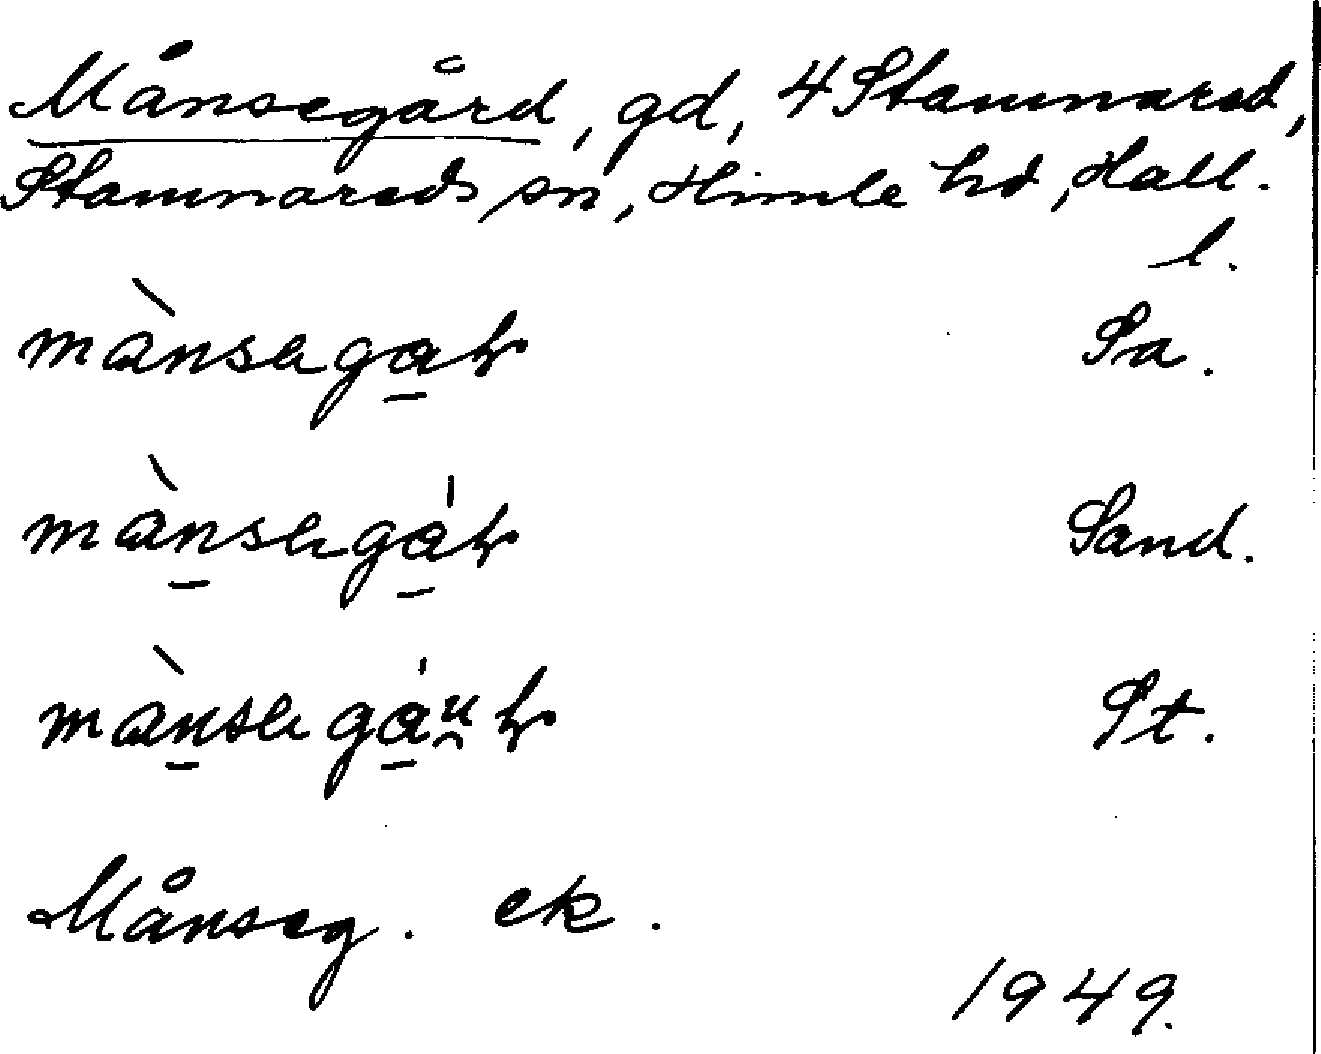 Månsegård, gd, 4 Stamnared,
Stamnareds sn, Himle hd, Hall.
l.
Sa.
Sand.
St.
Månseg. ek.
1949.